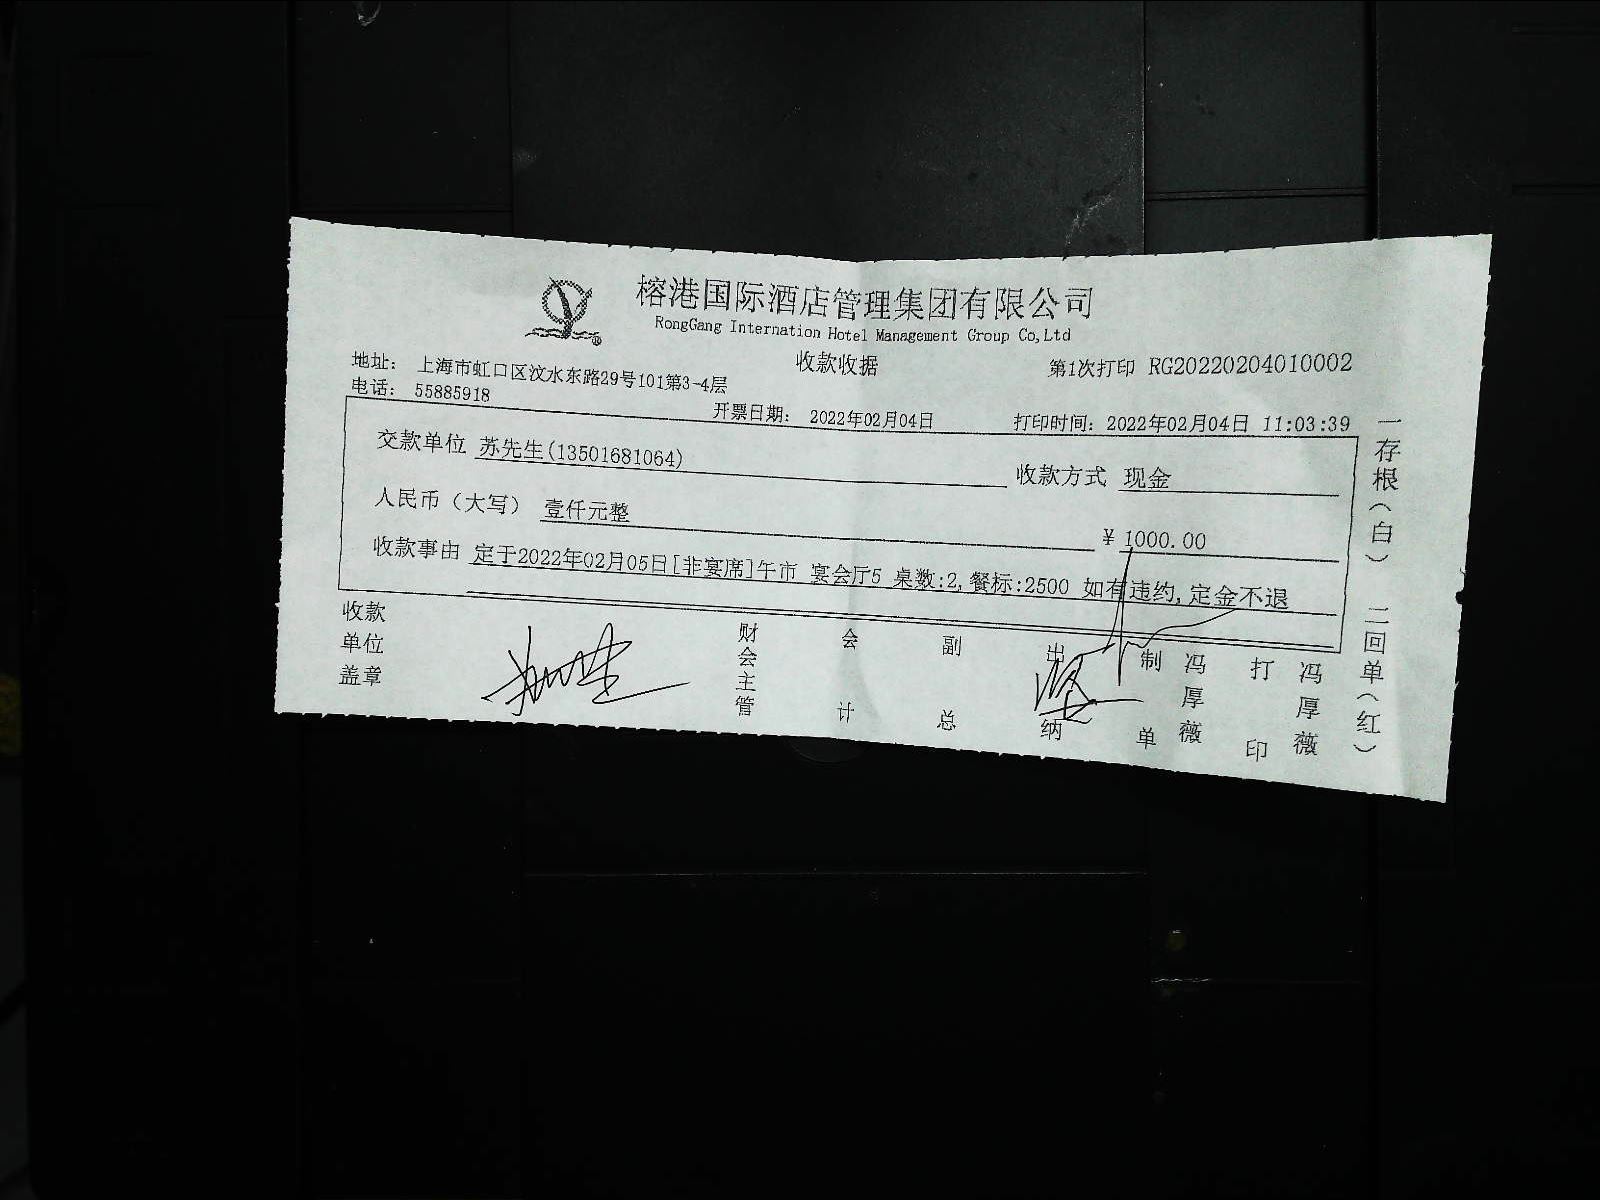 榕港国际酒店管理集团有限公司
RongGang Internation Hotel Management Group Co,Ltd
收款收据
第1次打印 RG20220204010002
地址： 上海市虹口区汶水东路29号101第3-4层
电话： 55885918
开票日期： 2022年02月04日
打印时间：2022年02月04日 11:03:39
交款单位 苏先生(13501681064)
收款方式 现金
人民币（大写） 壹仟元整
¥ 1000.00
收款事由 定于2022年02月05日[非宴席]午市 宴会厅5 桌数:2,餐标:2500 如有违约,定金不退
收款单位盖章
财会主管
会计
副总
出纳
制单
冯厚薇
打印
冯厚薇
一存根（白） 二回单（红）